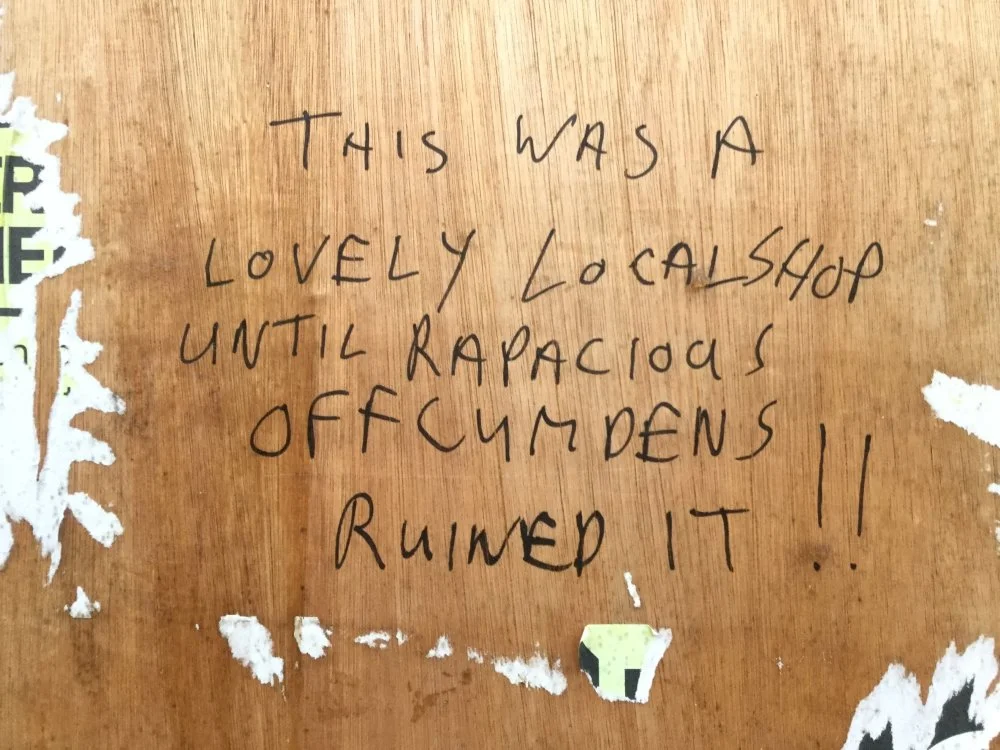 THIS WAS A
LOVELY LOCAL SHOP
UNTIL RAPACIOUS
OFFCUMDENS
RUINED IT !!